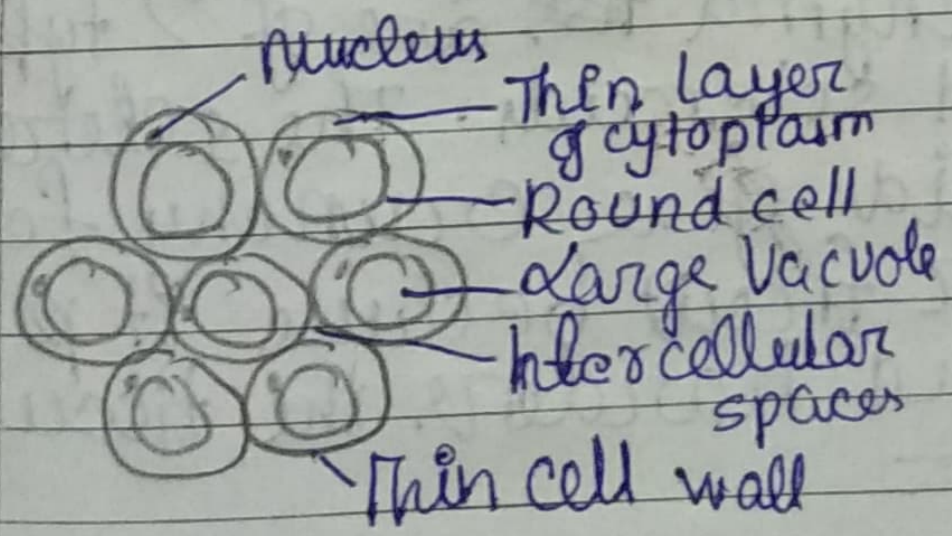 Nucleus
Thin layer
of cytoplasm
Round cell
Large Vacuole
Intercellular
spaces
Thin cell wall